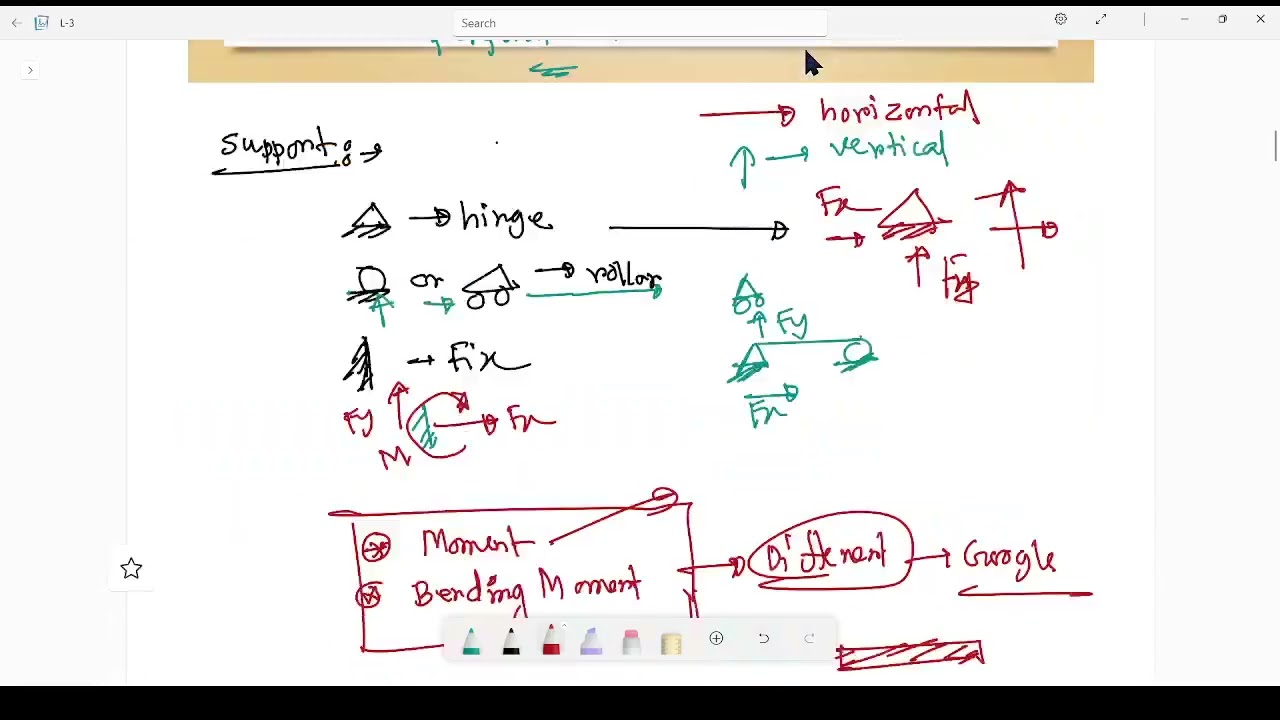 L-3
Search
horizontal
vertical
Support:
hinge
Fx
Fy
or
rollar
Fy
Fix
Fx
Fy
Fx
M
Moment
Bending Moment
Different
Google